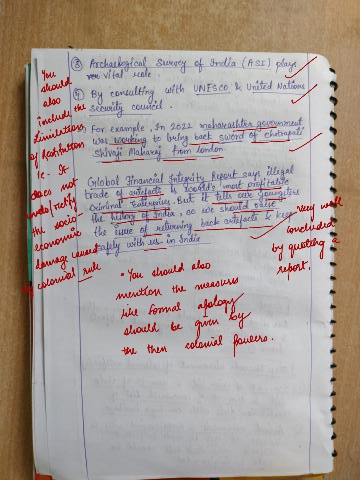 ③ Archaeological Survey of India (ASI) plays
very vital role
④ By consulting with UNESCO & United Nations
security council.
For example, In 2022 maharashtra government
was working to bring back sword of chatrapati
Shivaji Maharaj from london
Global Financial Integrity Report says illegal
trade of artefacts is world's most profitable
Criminal Enterprises. But it tells our youngsters
the history of India, so we should raise
the issue of returning back artefacts & keep
safely with us in India
You
should
also
include the
Limitations
of Restitution
ie. It
does not
undo/rectify
the socio-
economic
damage caused
by colonial rule
very well
concluded
by quoting a
report.
• You should also
mention the measures
like formal apology
should be given by
the then colonial powers.